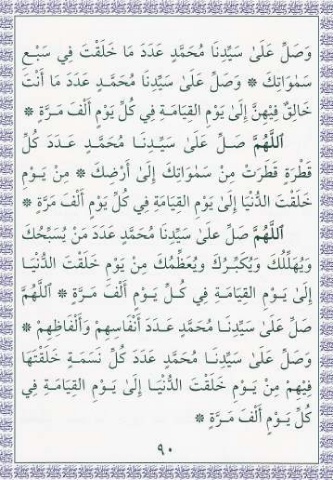 وَصَلِّ عَلَىٰ سَيِّدِنَا مُحَمَّدٍ عَدَدَ مَا خَلَقْتَ فِي سَبْعِ
سَمٰوَاتِكَ ❊ وَصَلِّ عَلَىٰ سَيِّدِنَا مُحَمَّدٍ عَدَدَ مَا أَنْتَ
خَالِقٌ فِيْهِنَّ إِلَىٰ يَوْمِ القِيَامَةِ فِي كُلِّ يَوْمٍ أَلْفَ مَرَّةٍ ❊
اَللَّهُمَّ صَلِّ عَلَىٰ سَيِّدِنَا مُحَمَّدٍ عَدَدَ كُلِّ
قَطْرَةٍ قَطَرَتْ مِنْ سَمٰوَاتِكَ إِلَىٰ أَرْضِكَ ❊ مِنْ يَوْمِ
خَلَقْتَ الدُّنْيَا إِلَىٰ يَوْمِ القِيَامَةِ فِي كُلِّ يَوْمٍ أَلْفَ مَرَّةٍ ❊
اَللَّهُمَّ صَلِّ عَلَىٰ سَيِّدِنَا مُحَمَّدٍ عَدَدَ مَنْ يُسَبِّحُكَ
وَيُهَلِّلُكَ وَيُكَبِّرُكَ وَيُعَظِّمُكَ مِنْ يَوْمِ خَلَقْتَ الدُّنْيَا
إِلَىٰ يَوْمِ القِيَامَةِ فِي كُلِّ يَوْمٍ أَلْفَ مَرَّةٍ ❊ اَللَّهُمَّ
صَلِّ عَلَىٰ سَيِّدِنَا مُحَمَّدٍ عَدَدَ أَنْفَاسِهِمْ وَأَلْفَاظِهِمْ ❊
وَصَلِّ عَلَىٰ سَيِّدِنَا مُحَمَّدٍ عَدَدَ كُلِّ نَسَمَةٍ خَلَقْتَهَا
فِيْهِمْ مِنْ يَوْمِ خَلَقْتَ الدُّنْيَا إِلَىٰ يَوْمِ القِيَامَةِ فِي
كُلِّ يَوْمٍ أَلْفَ مَرَّةٍ ❊
٩٠